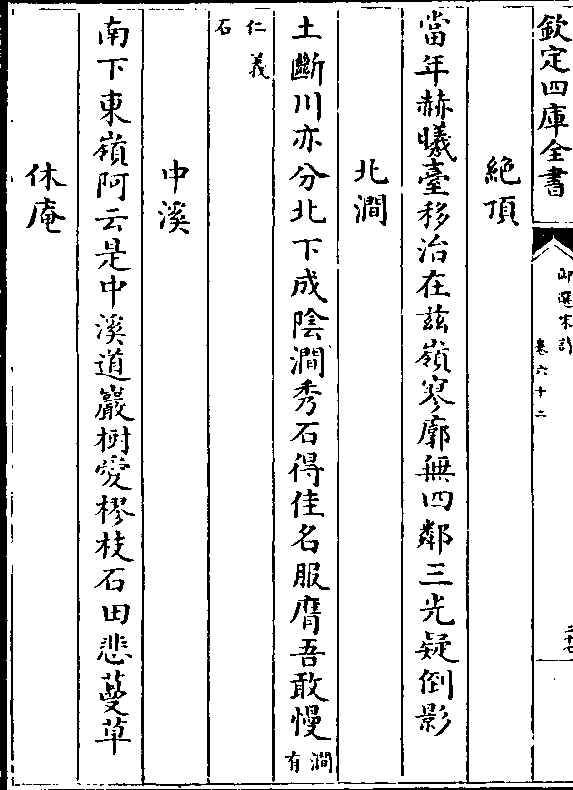 欽定四庫全書
御選宋詩
卷六十二
二十七
絶頂
當年赫曦臺移治在兹嶺寥廓無四鄰三光疑倒影
北澗
土斷川亦分北下成陰澗秀石得佳名服膺吾敢慢澗有
仁義石
中溪
南下東嶺阿云是中溪道巖樹愛樛枝石田悲蔓草
休庵